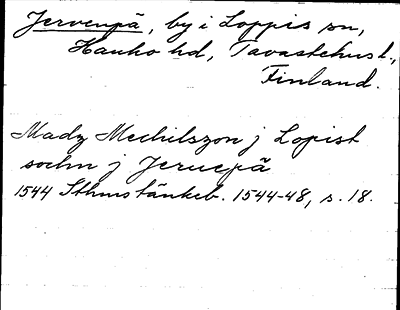 Jervenpä, by i Loppis sn,
Hauho hd, Tavastehus l.,
Finland.
Madz Mechilszon j Lopist
sochn j Jeruepä
1544 Sthms tänkeb. 1544-48, s. 18.